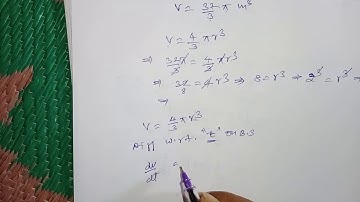 V = 32/3 π m³
V = 4/3 π r³
⇒ 32π/3 = 4/3 π r³
⇒ 32/8 = 4r³ ⇒ 8 = r³ ⇒ 2³ = r³ ⇒
⇒
V = 4/3 π r³
Diff w.r.t. "t" on B.S
dv/dt =